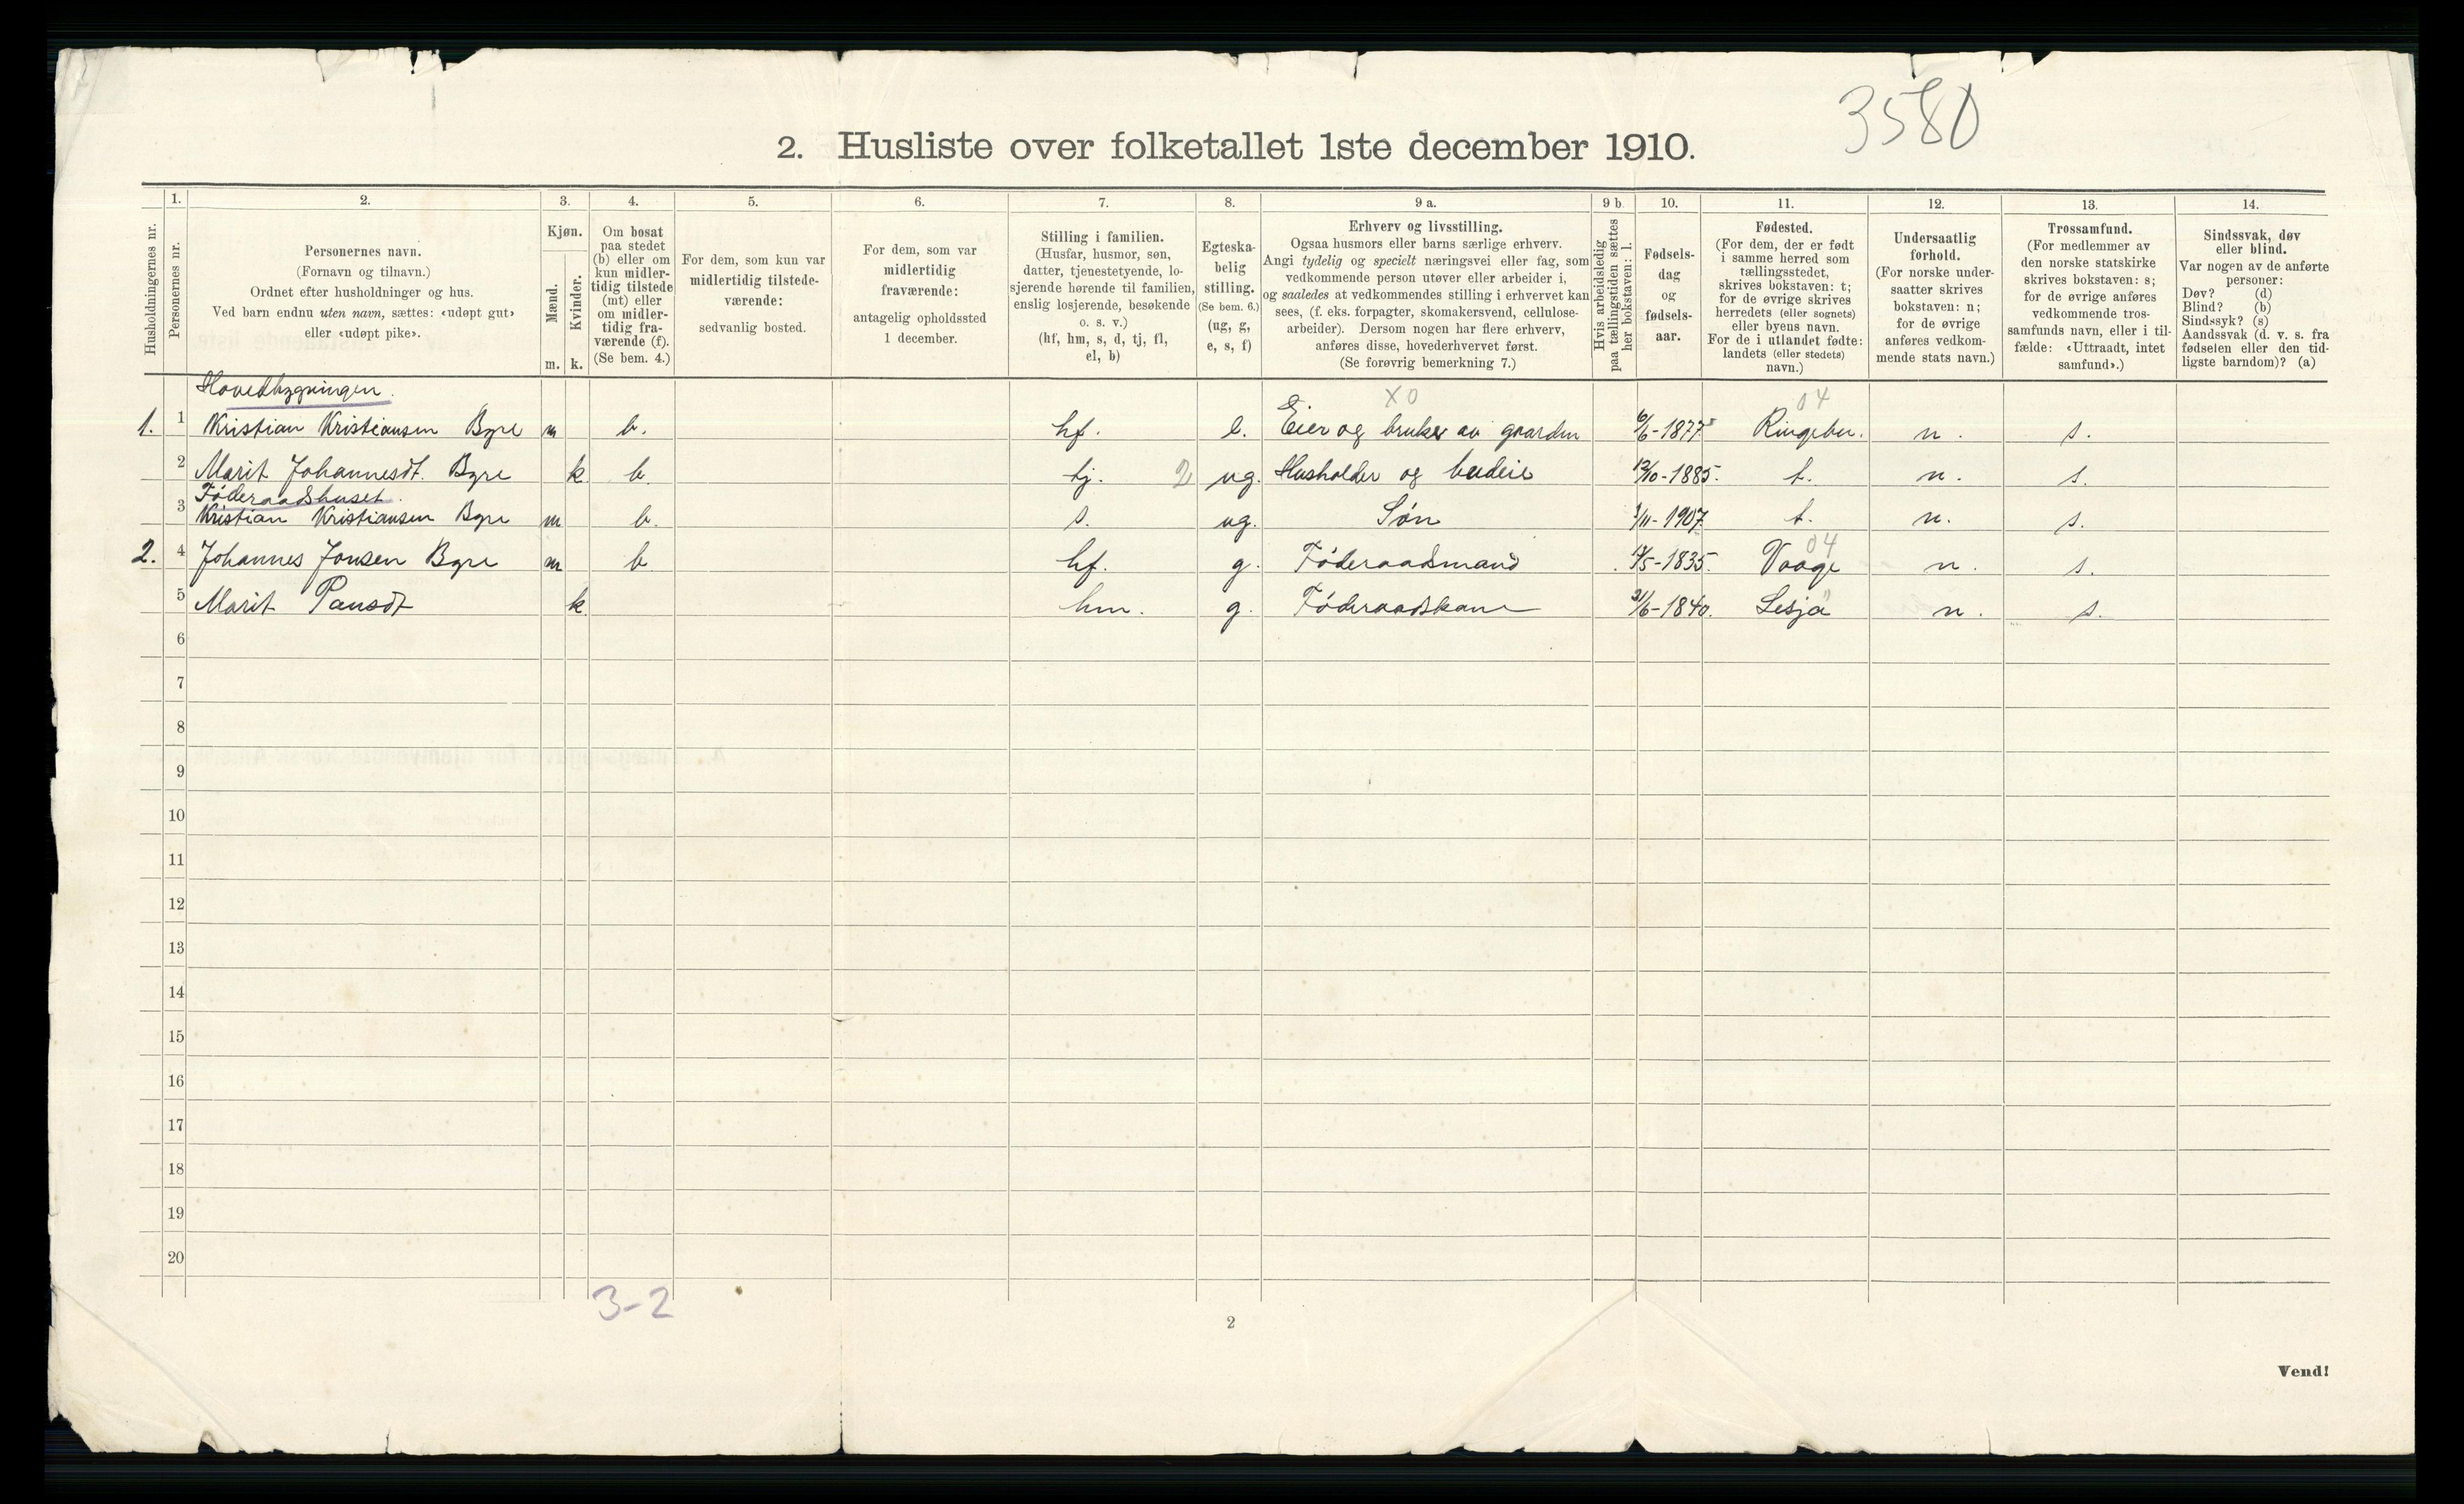 3580
2. Husliste over folketallet 1ste december 1910.
Husholdningernes nr.
1.
Personernes nr.
2.
Personernes navn.
(Fornavn og tilnavn.)
Ordnet efter husholdninger og hus.
Ved barn endnu uten navn, sættes: «udøpt gut»
eller «udøpt pike».
3.
Kjøn.
Mænd.
Kvinder.
m. k.
4.
Om bosat
paa stedet
(b) eller om
kun midler-
tidig tilstede
(mt) eller
om midler-
tidig fra-
værende (f).
(Se bem. 4.)
5.
For dem, som kun var
midlertidig tilstede-
værende:
sedvanlig bosted.
6.
For dem, som var
midlertidig
fraværende:
antagelig opholdssted
1 december.
7.
Stilling i familien.
(Husfar, husmor, søn,
datter, tjenestetyende, lo-
sjerende hørende til familien,
enslig losjerende, besøkende
o. s. v.)
(hf, hm, s, d, tj, fl,
el, b)
8.
Egteska-
belig
stilling.
(Se bem. 6.)
(ug, g,
e, s, f)
9 a.
Erhverv og livsstilling.
Ogsaa husmors eller barns særlige erhverv.
Angi tydelig og specielt næringsvei eller fag, som
vedkommende person utøver eller arbeider i,
og saaledes at vedkommendes stilling i erhvervet kan
sees, (f. eks. forpagter, skomakersvend, cellulose-
arbeider). Dersom nogen har flere erhverv,
anføres disse, hovederhvervet først.
(Se forøvrig bemerkning 7.)
9 b.
Hvis arbeidsledig
paa tællingstiden sættes
her bokstaven: l.
10.
Fødsels-
dag
og
fødsels-
aar.
11.
Fødested.
(For dem, der er født
i samme herred som
tællingsstedet,
skrives bokstaven: t;
for de øvrige skrives
herredets (eller sognets)
eller byens navn.
For de i utlandet fødte:
landets (eller stedets)
navn.)
12.
Undersaatlig
forhold.
(For norske under-
saatter skrives
bokstaven: n;
for de øvrige
anføres vedkom-
mende stats navn.)
13.
Trossamfund.
(For medlemmer av
den norske statskirke
skrives bokstaven: s;
for de øvrige anføres
vedkommende tros-
samfunds navn, eller i til-
fælde: «Uttraadt, intet
samfund».)
14.
Sindssvak, døv
eller blind.
Var nogen av de anførte
personer:
Døv? (d)
Blind? (b)
Sindssyk? (s)
Aandssvak (d. v. s. fra
fødselen eller den tid-
ligste barndom)? (a)
Hovedbygningen. X0 04
1. 1 Kristian Kristiansen Bgre m b. hf. e. Eier og bruker av gaarden 6/6-1877 Ringebu. n. s.
2 Marit Johannesdt. Bgre k b. tj. 2 ug. Husholder og budeie 12/10-1885. t. n. s.
Føderaadshuset.
3 Kristian Kristiansen Bgre m b. s. ug. Søn 1/11-1907 t. n. s.
04
2. 4 Johannes Jonsen Bgre m b hf. g. Føderaadsmand /5-1835. Vaage n. s.
5 Marit k hm. g. Føderaadskone 21/6-1840. Lesja n. s.
6
7
8
9
10
11
12
13
14
15
16
17
18
19
20
3-2
2
Vend!